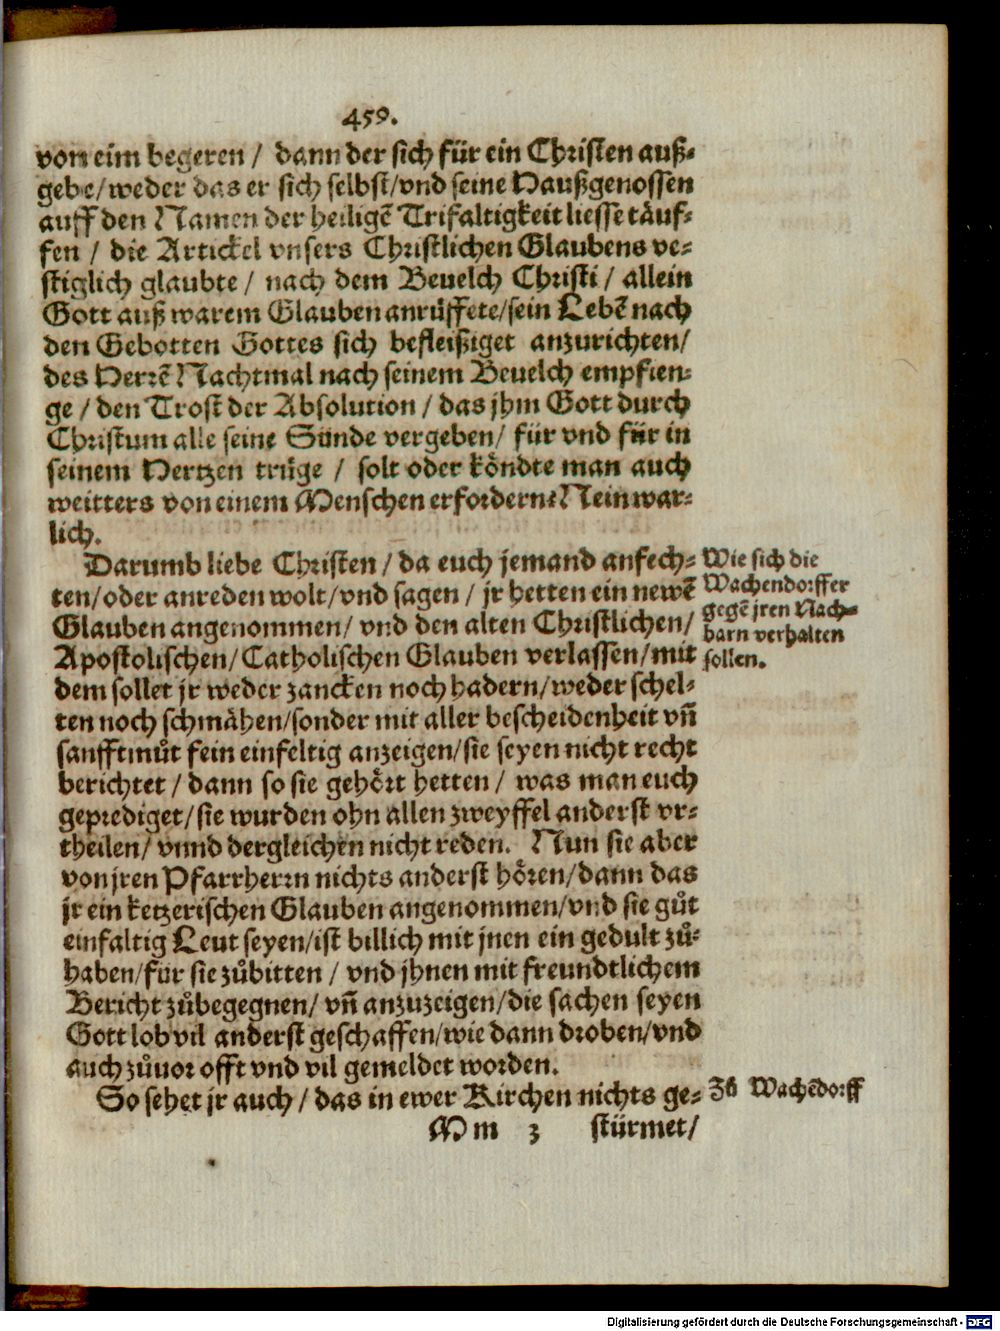 459.
von eim begeren / dann der sich für ein Christen auß-
gebe/weder das er sich selbst/vnd seine Haußgenossen
auff den Namen der heiligẽ Trifaltigkeit liesse täuf-
fen / die Artickel vnsers Christlichen Glaubens ve-
stiglich glaubte / nach dem Beuelch Christi / allein
Gott auß warem Glauben anrůffete/sein Lebẽ nach
den Gebotten Gottes sich befleißiget anzurichten/
des Herrẽ Nachtmal nach seinem Beuelch empfien-
ge / den Trost der Absolution / das jhm Gott durch
Christum alle seine Sünde vergeben/ für vnd für in
seinem Hertzen trüge / solt oder köndte man auch
weitters von einem Menschen erfordern? Nein war-
lich.
Darumb liebe Christen / da euch jemand anfech-
ten/oder anreden wolt/vnd sagen / jr hetten ein newẽ
Glauben angenommen/ vnd den alten Christlichen/
Apostolischen/Catholischen Glauben verlassen/mit
dem sollet jr weder zancken noch hadern/weder schel-
ten noch schmähen/sonder mit aller bescheidenheit vñ
sanfftmůt fein einfeltig anzeigen/sie seyen nicht recht
berichtet / dann so sie gehört hetten / was man euch
geprediget/sie wurden ohn allen zweyffel anderst vr-
theilen/ vnnd dergleichen nicht reden. Nun sie aber
von jren Pfarrherrn nichts anderst hören/dann das
jr ein ketzerischen Glauben angenommen/vnd sie gůt
einfaltig Leut seyen/ist billich mit jnen ein gedult zů-
haben/für sie zůbitten / vnd jhnen mit freundtlichem
Bericht zůbegegnen/ vñ anzuzeigen/die sachen seyen
Gott lob vil anderst geschaffen/wie dann droben/vnd
auch zůuor offt vnd vil gemeldet worden.
So sehet jr auch / das in ewer Kirchen nichts ge-
Mm 3 stürmet/
Wie sich die
Wachendorffer
gegẽ jren Nach-
barn verhalten
sollen.
Zů Wachẽdorff
Digitalisierung gefördert durch die Deutsche Forschungsgemeinschaft - DFG